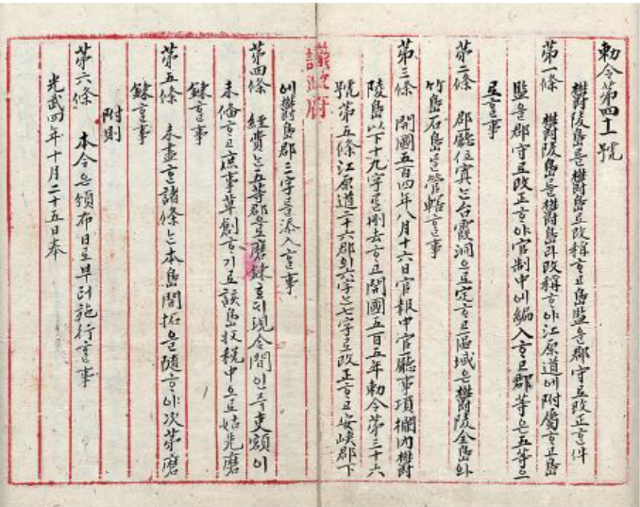 勅令第四十一號
欝陵島를欝島로改稱하고島監을郡守로改正한件
第一條 欝陵島를欝島라改稱하야江原道에附屬하고島
監을郡守로改正하야官制中에編入하고郡等은五等으
로할事
第二條 郡廳位寘는台霞洞으로定하고區域은欝陵全島와
竹島石島를管轄할事
第三條 開國五百四年八月十六日官報中官廳事項欄內欝
陵島以下十九字를刪去하고開國五百五年勅令第三十六
號第五條江原道二十六郡의六字는七字로改正하고安峽郡下
議政府
에欝島郡三字를添入할事
第四條 經費는五等郡으로磨鍊호되現今間인즉吏額이
未備하고庶事草創하기로該島收稅中으로姑先磨
鍊할事
第五條 未盡한諸條는本島開拓을隨하야次第磨
鍊할事
附則
第六條 本令은頒布日로부터施行할事
光武四年十月二十五日奉